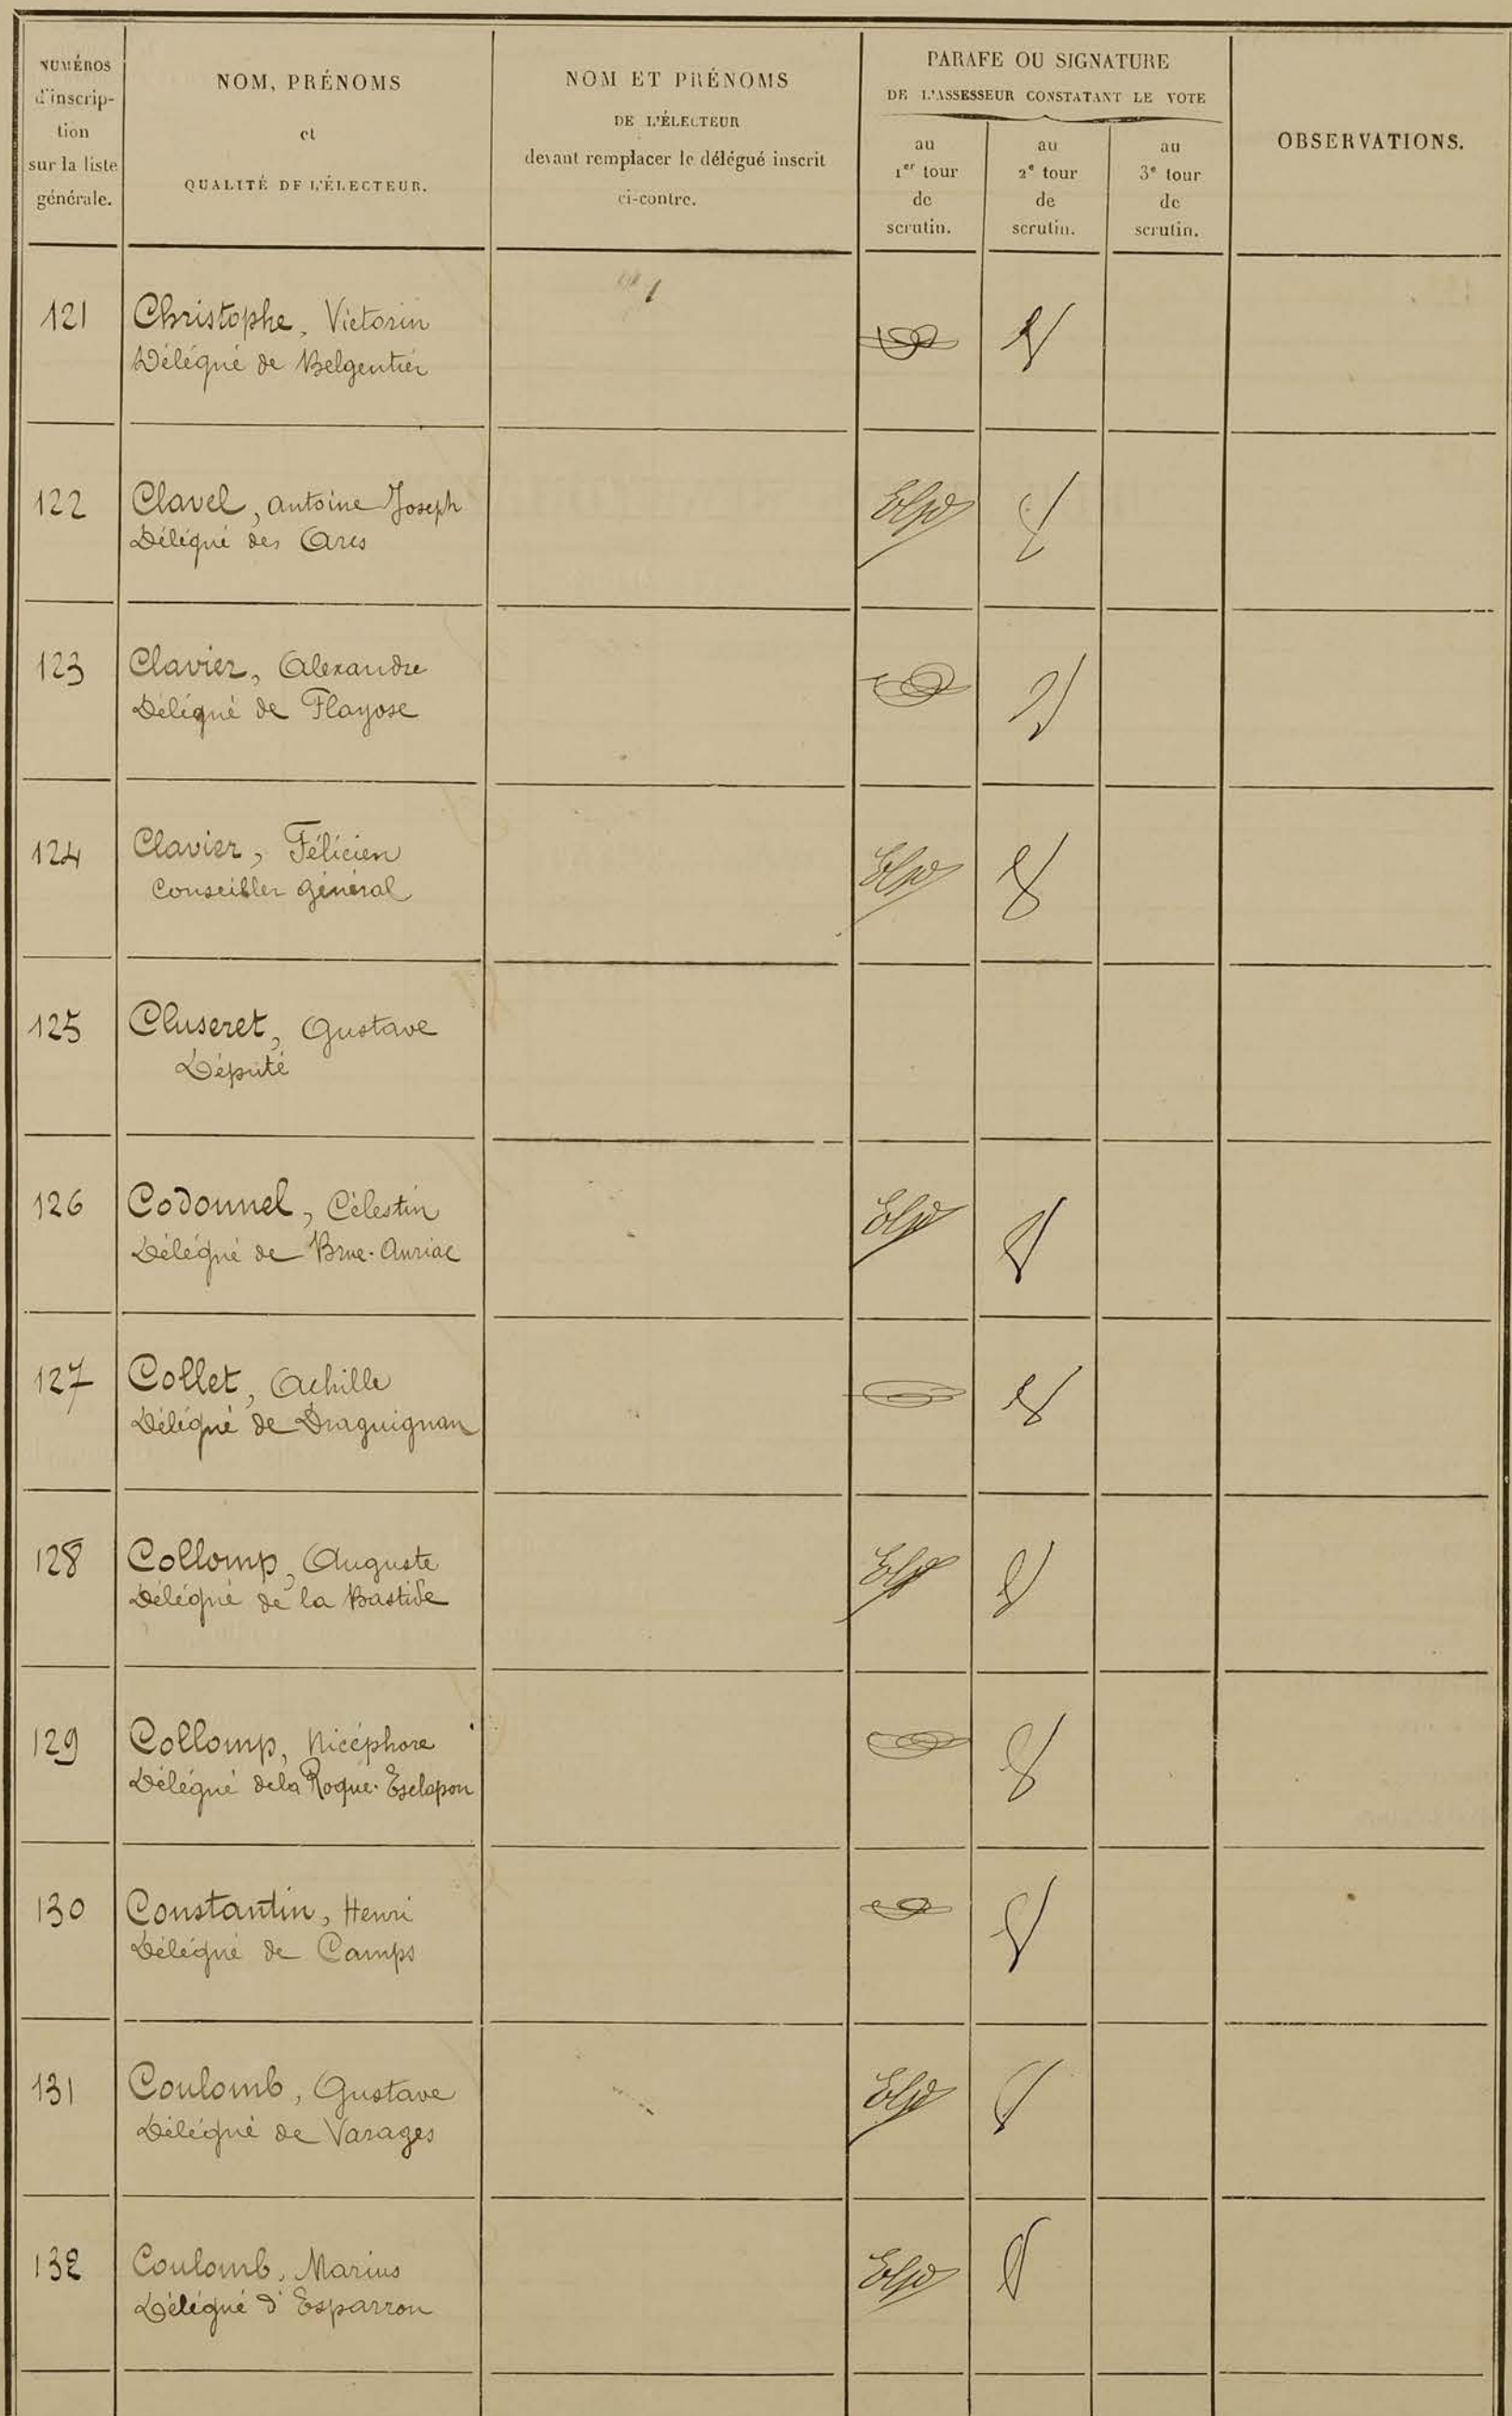 NUMÉROS
d'inscrip-
tion
sur la liste
générale.
NOM, PRÉNOMS
et
QUALITÉ DE L'ÉLECTEUR.
NOM ET PRÉNOMS
DE L'ÉLECTEUR
devant remplacer le délégué inscrit
ci-contre.
PARAFE OU SIGNATURE
DE L'ASSESSEUR CONSTATANT LE VOTE
au
1er tour
de
scrutin.
au
2e tour
de
scrutin.
au
3e tour
de
scrutin.
OBSERVATIONS.
121 Christophe, Victorin
Délégué de Belgentier
122 Clavel, Antoine Joseph
Délégué des Arcs
123 Clavier, Alexandre
Délégué de Flayose
124 Clavier, Félicien
Conseiller général
125 Cluseret, Gustave
Député
126 Codonnel, Célestin
Délégué de Brue-Auriac
127 Collet, Achille
Délégué de Draguignan
128 Collomp, Auguste
Délégué de la Bastide
129 Collomp, Nicéphore
Délégué de la Roque-Esclapon
130 Constantin, Henri
Délégué de Camps
131 Coulomb, Gustave
Délégué de Varages
132 Coulomb, Marius
Délégué d'Esparron